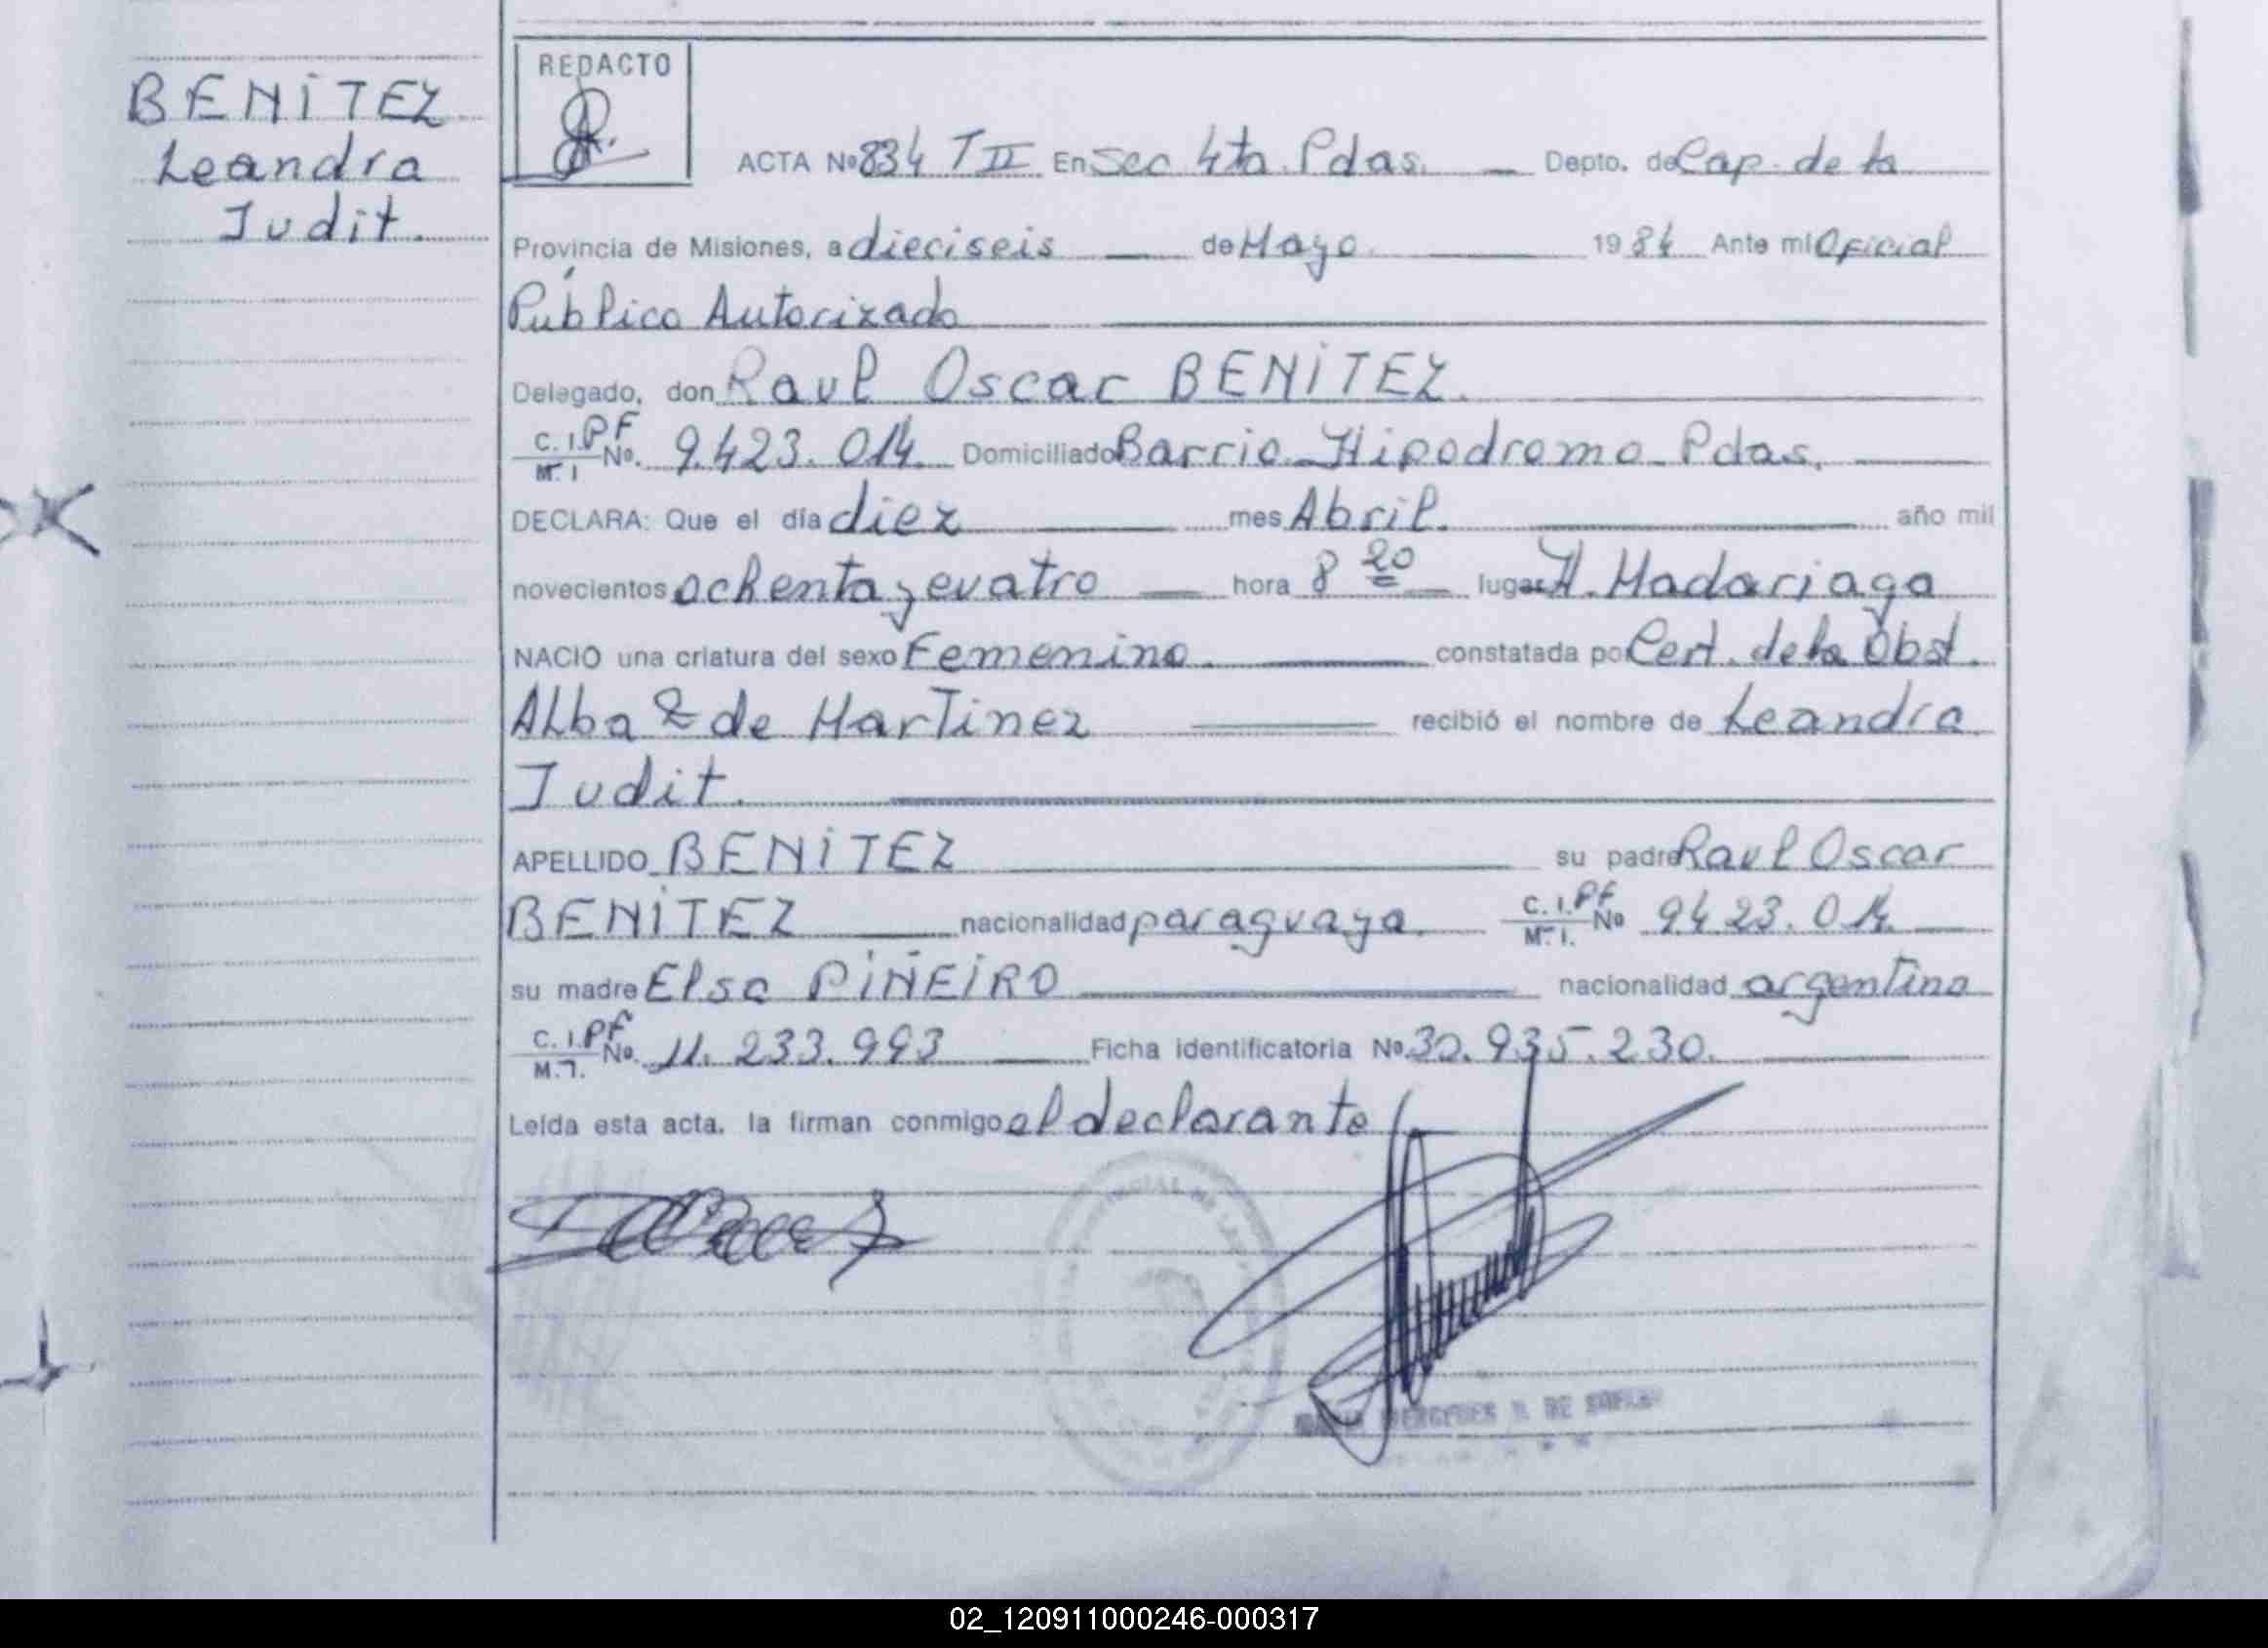 BENÍTEZ
Leandra
Judit.
REDACTO
ACTA Nº 834 T II En Sec 4ta. Pdas. Depto. de Cap. de la
Provincia de Misiones, a dieciseis de Mayo. 1984 Ante mi Oficial
Público Autorizado
Delegado, don Raul Oscar BENÍTEZ.
C. I. PF
M. I No. 9.423.014. Domiciliado Barrio Hipodromo Pdas.
DECLARA: Que el día diez mes Abril. año mil
novecientos ochenta y cuatro hora 8 20 lugar H. Madariaga
NACIO una criatura del sexo Femenino. constatada por Cert. de la Obst.
Alba de Martinez recibió el nombre de Leandra
Judit.
APELLIDO BENÍTEZ su padre Raul Oscar
BENÍTEZ nacionalidad paraguaya. C. I. PF
M. I. No 9423.014.
su madre Elsa PIÑEIRO nacionalidad argentina
C. I. PF
M. I. No. 11.233.993 Ficha identificatoria No. 30.935.230.
Leída esta acta. la firman conmigo el declarante
MERCEDES DE
02_120911000246-000317